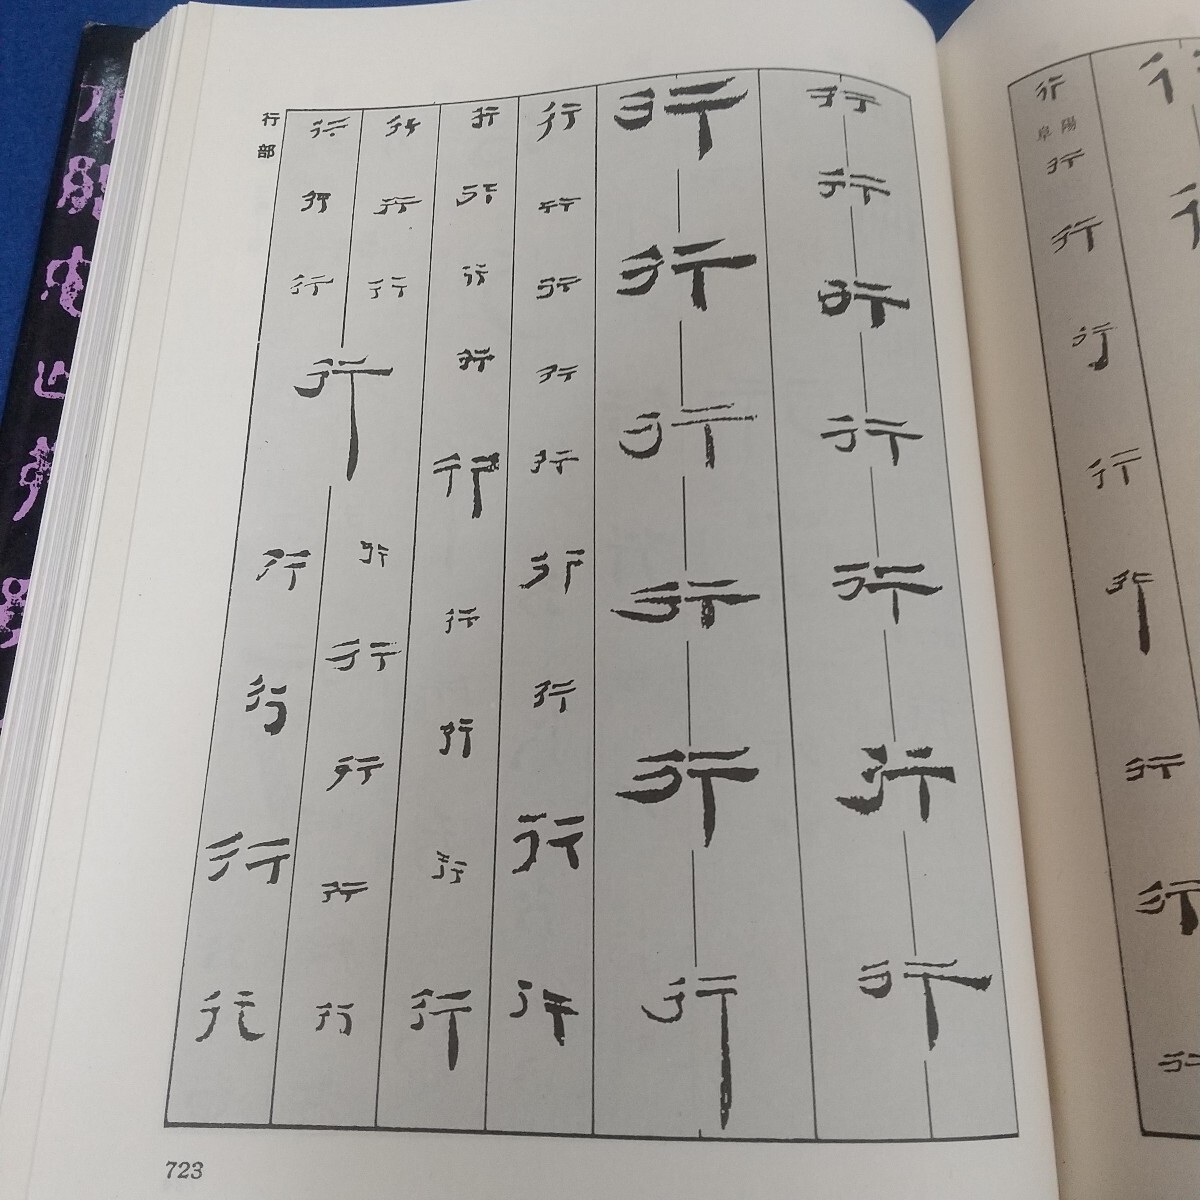 行
阜陽
行行行行行行行行
行行行行行行行
行行行行行行
行行行行行行行行行
行行行行行行行行行
行行行行行行行行行
行行行行行行行
行部
723